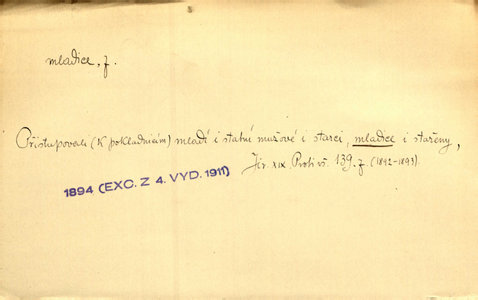 mladice, f.
Přistupovali (k pokladnicím) mladí i statní mužové i starci, mladice i stařeny,
Jir. XIX. Proti vš. 139. f. (1892-1893).
1894 (EXC. Z 4. VYD. 1911)